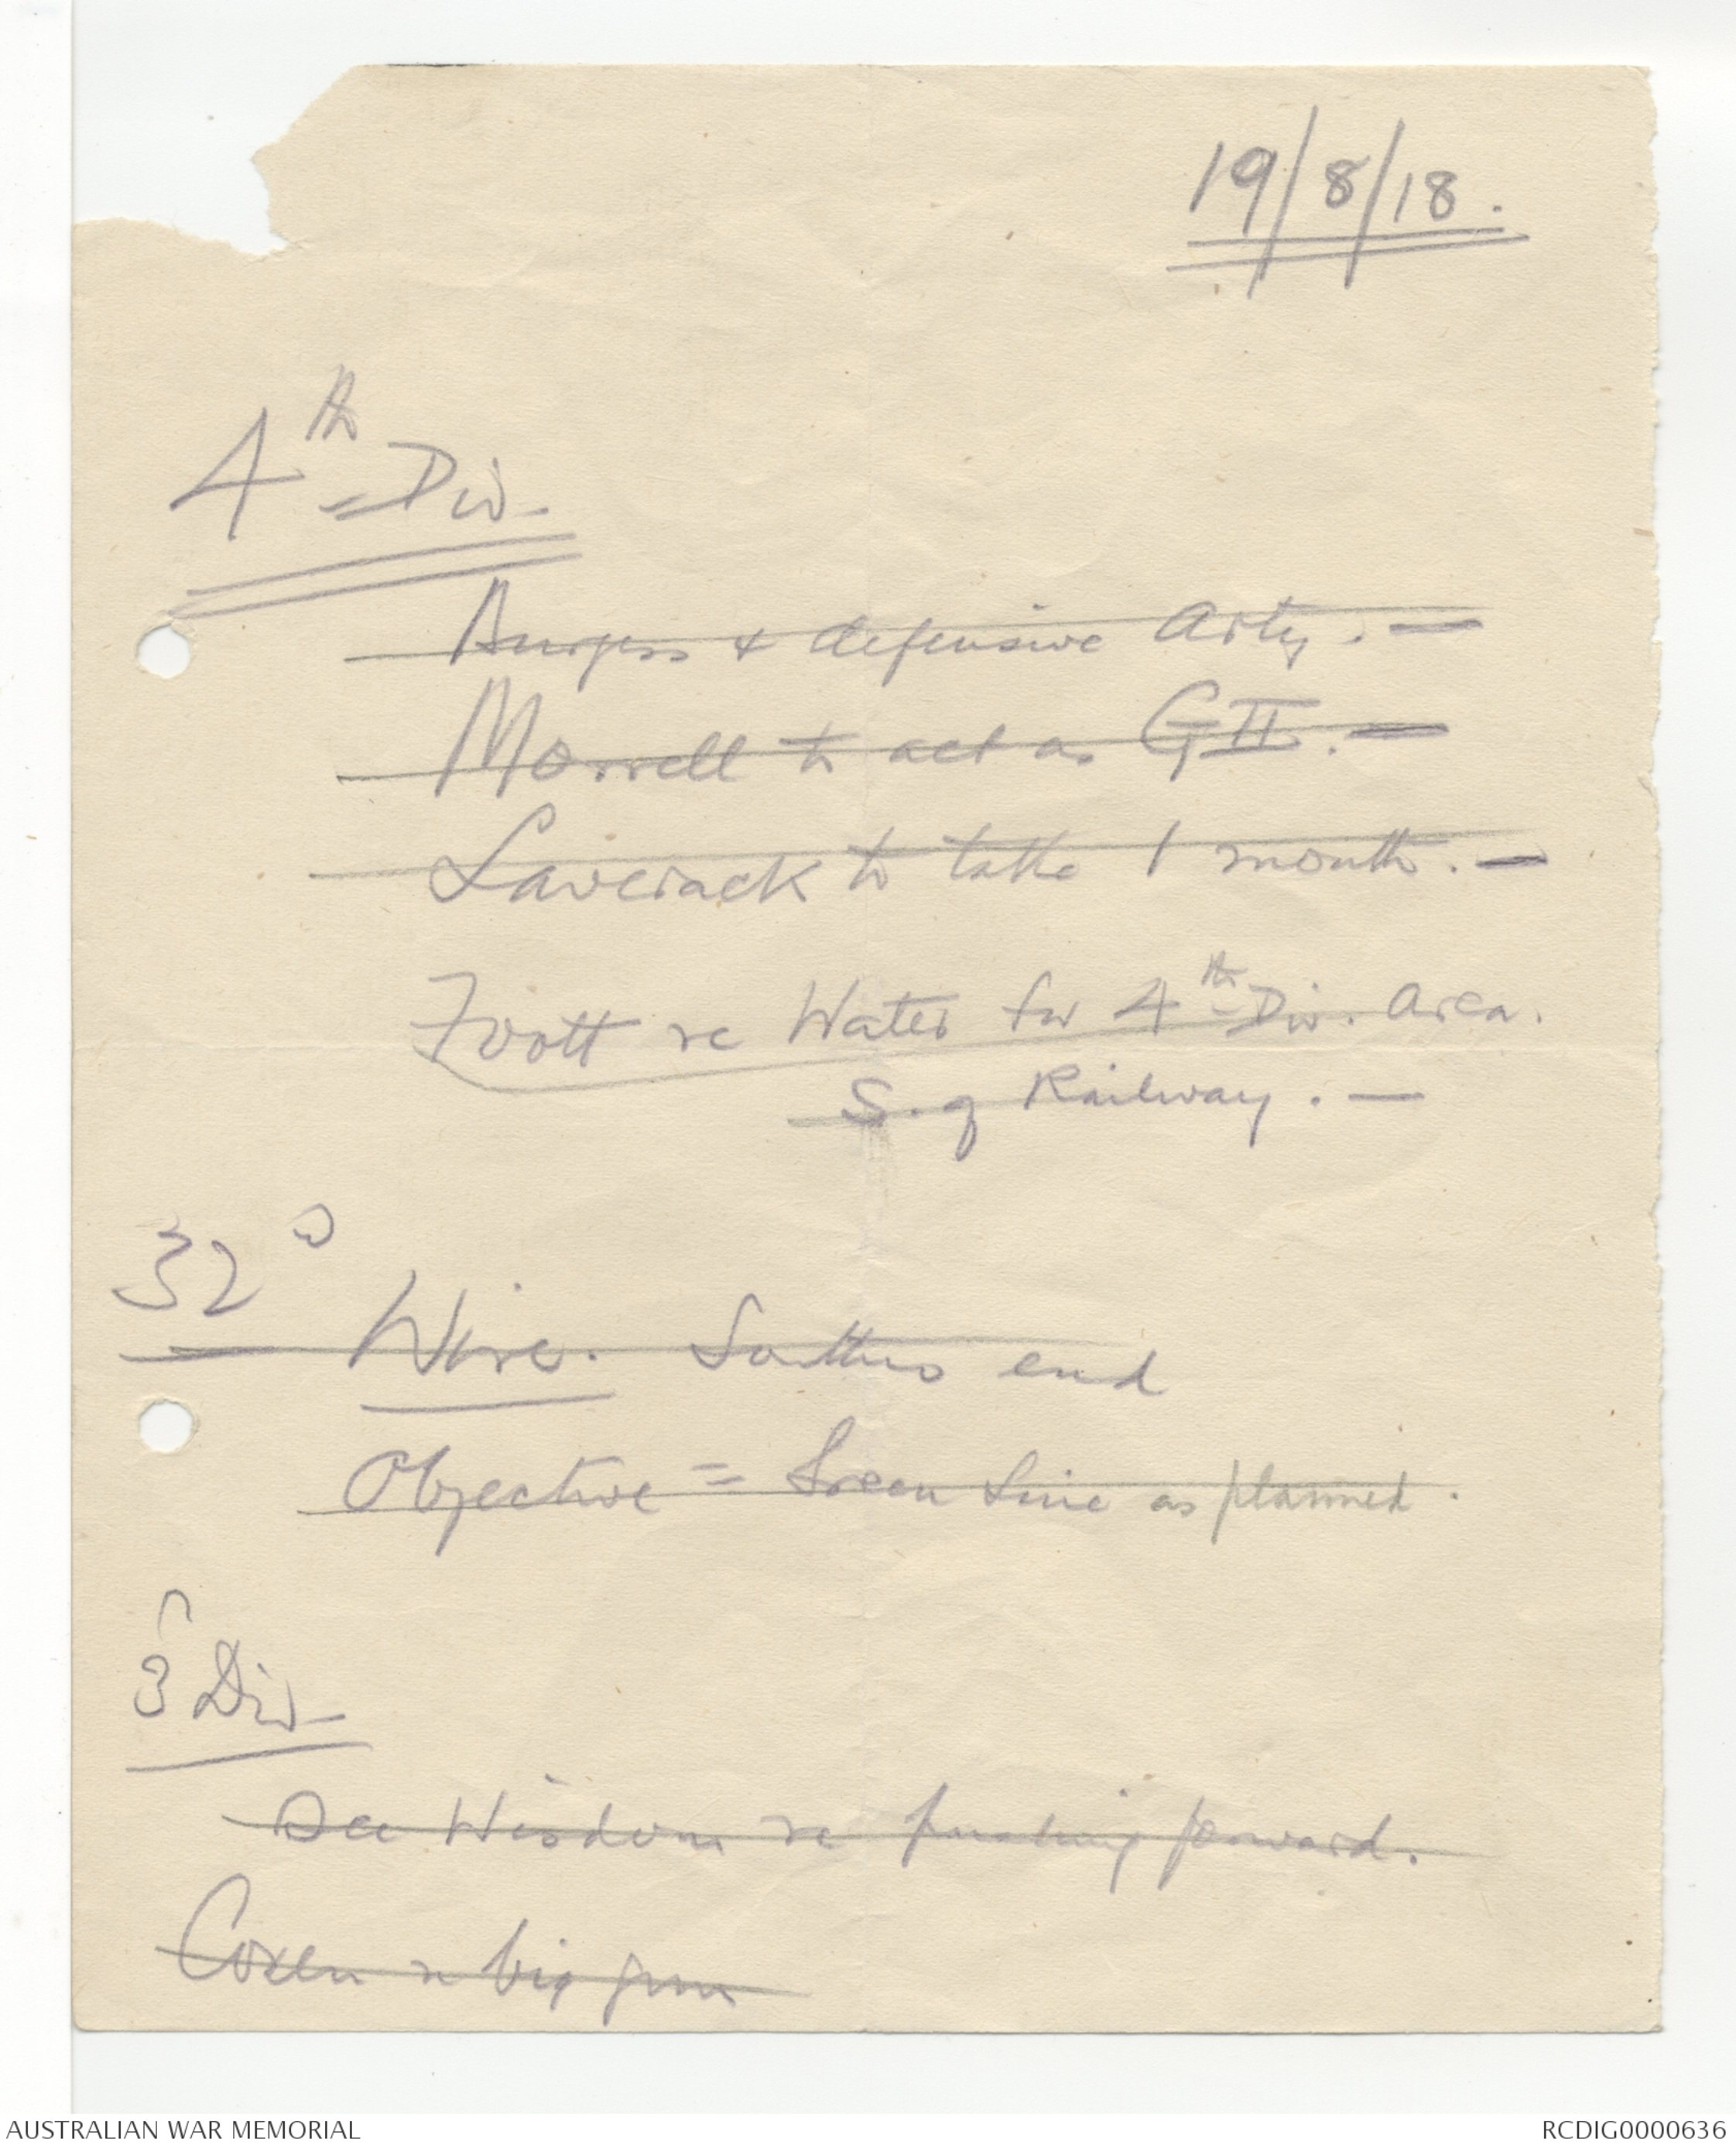 19/8/18.
4th Div.
Burgess & defensive Arty. —
Morrell to act as GII. —
Laverack to take 1 month. —
Foott re Water for 4th Div. Area.
S. of Railway. —
32 D
Wire. Southern end
Objective = Green Line as planned.
3 Div
See Wisdom re pushing forward.
Coxen re big gun
AUSTRALIAN WAR MEMORIAL
RCDIG0000636